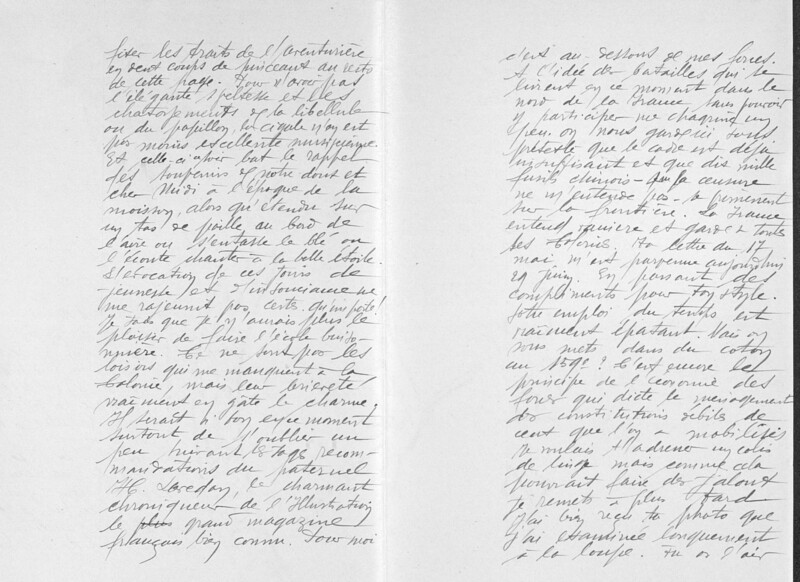 fixer les traits de l'aventurière
en deux coups de pinceaux au verso
de cette page. Pour n'avoir pas
l'élégante sveltesse et les
chatoiements de la libellule
ou du papillon, la cigale n'en est
pas moins excellente musicienne.
Et celle-ci a pour bat le rappel
des souvenirs de notre doux et
cher Midi à l'époque de la
moisson, alors qu'étendu sur
un tas de paille au bord de
l'aire où s'entasse le blé on
l'écoute chanter à la belle étoile.
L'évocation de ces jours de
jeunesse et d'insouciance ne
me rajeunit pas, certes, qu'importe!
Je sais que je n'aurais plus le
plaisir de faire l'école buisson-
nière. Ce ne sont pas les
loisirs qui me manquent à la
Colonie, mais leur brièveté
vraiment en gâte le charme.
Il serait bon en ce moment
surtout de s'oublier un
peu suivant les sages recom-
mandations du paternel
H. Lavedan, le charmant
chroniqueur de l'Illustration
le grand magazine
français bien connu. Pour moi
c'est au-dessous de mes forces.
A l'idée des batailles qui se
livrent en ce moment dans le
nord de la France sans pouvoir
y participer me chagrine un
peu. On nous garde ici sous
prétexte que le cadre est déjà
insuffisant et que dix mille
fusils chinois - que la censure
ne m'entende pas - se promènent
sur la frontière. La France
entend vaincre et garder toutes
ses Colonies. Ta lettre du 17
mai m'est parvenue aujourd'hui
29 juin. En passant des
compliments pour ton style.
Votre emploi du temps est
vraiment épatant. Mais on
vous mets dans du coton
au 159e? C'est encore le
principe de l'économie des
forces qui dicte le ménagement
des constitutions débiles de
ceux que l'on a mobilisés
Je voulais t'adresser un colis
de linge mais comme cela
pourrait faire des jaloux
je remets à plus tard
J'ai bien reçu ta photo que
j'ai examinée longuement
à la loupe. Tu as l'air